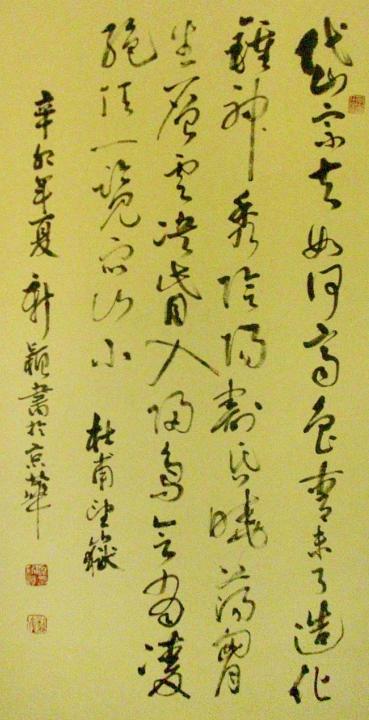 岱宗夫如何齊魯青未了造化
鍾神秀陰陽割昏曉蕩胸
生層雲決眥入歸鳥會當凌
絕頂一覽眾山小
杜甫望嶽
辛卯年夏新穎書於京華